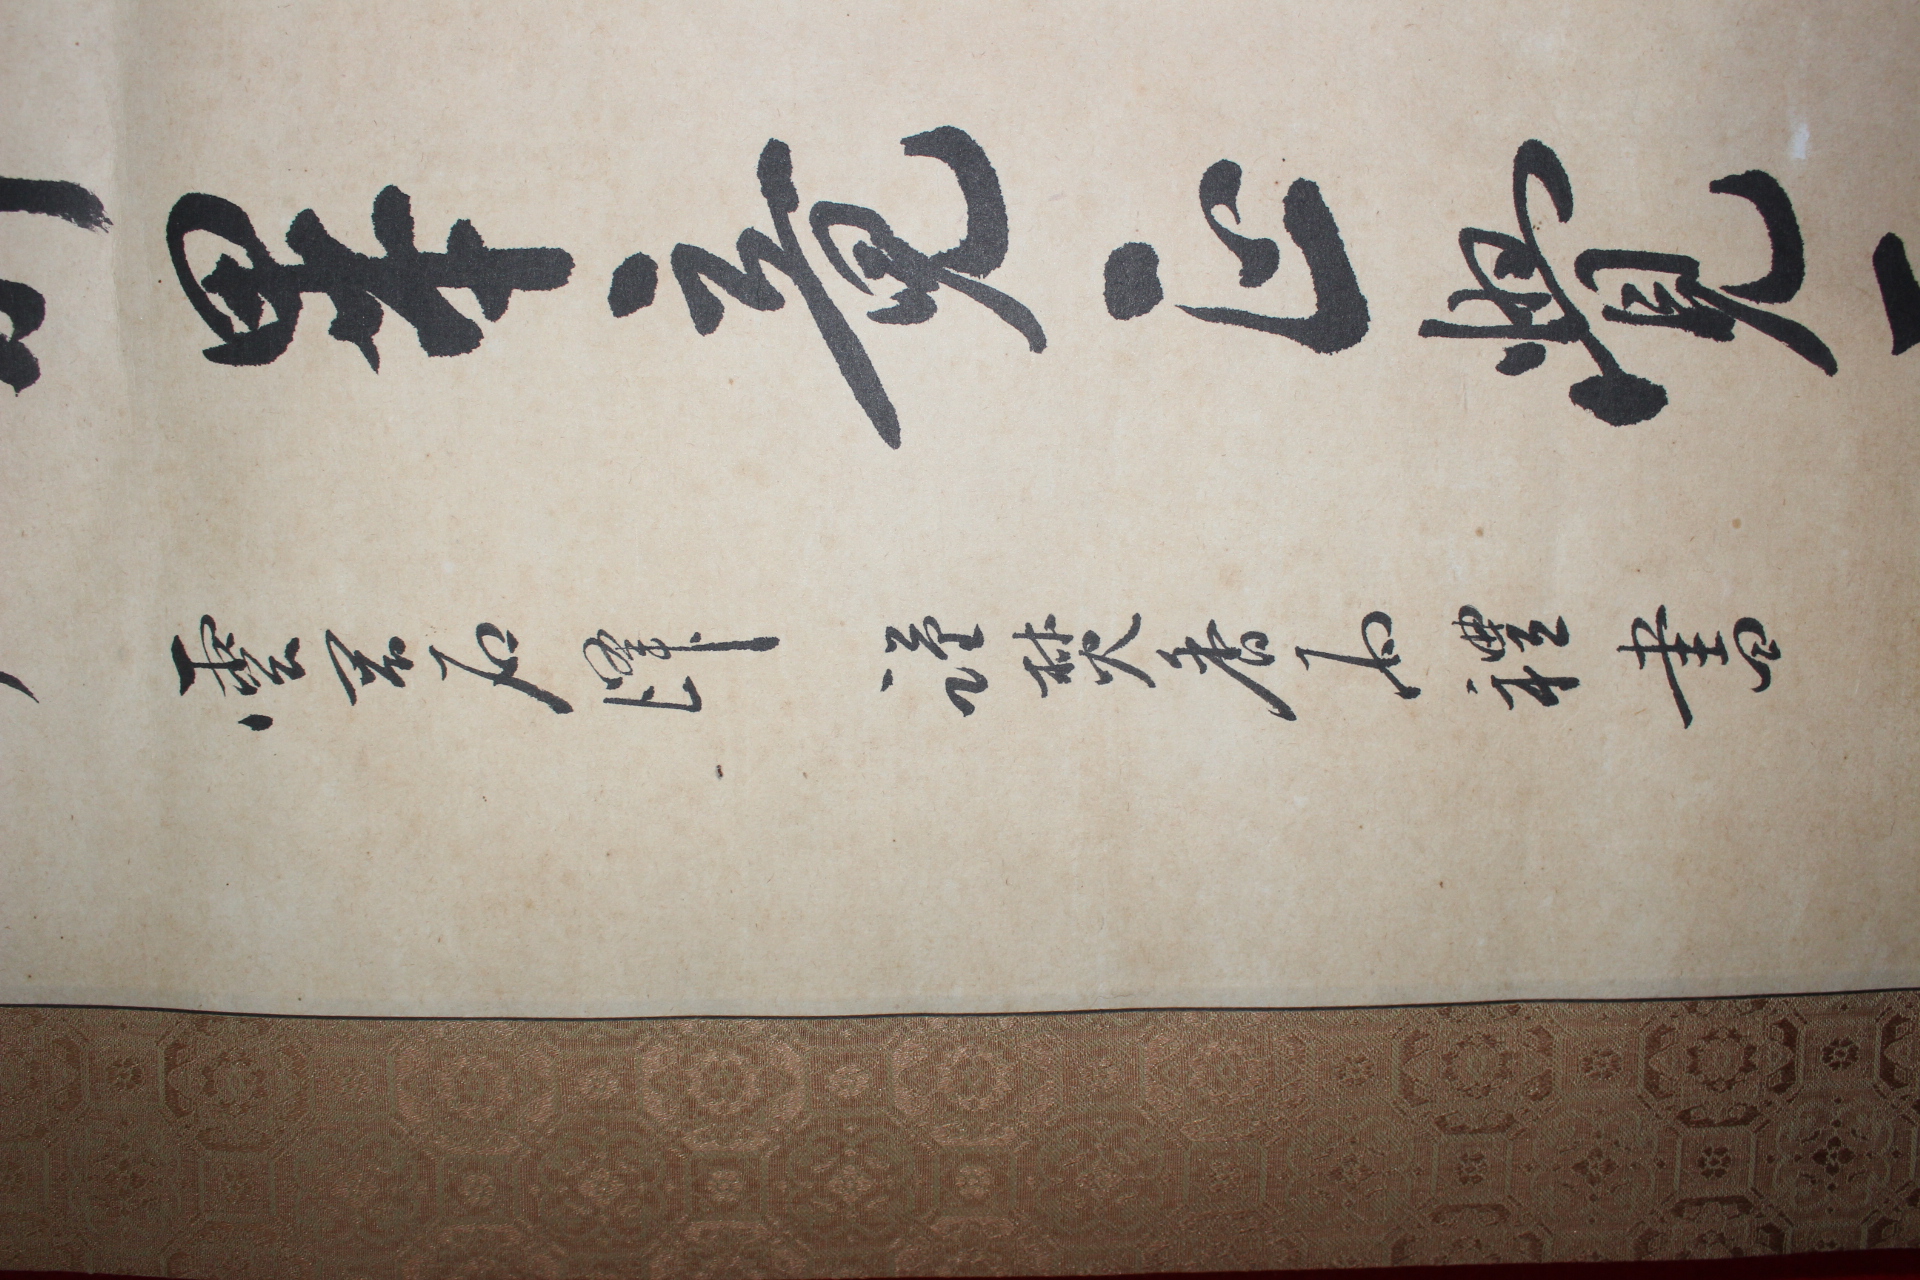 畢竟正覺
雲君石鐸 謹焚香而禮書